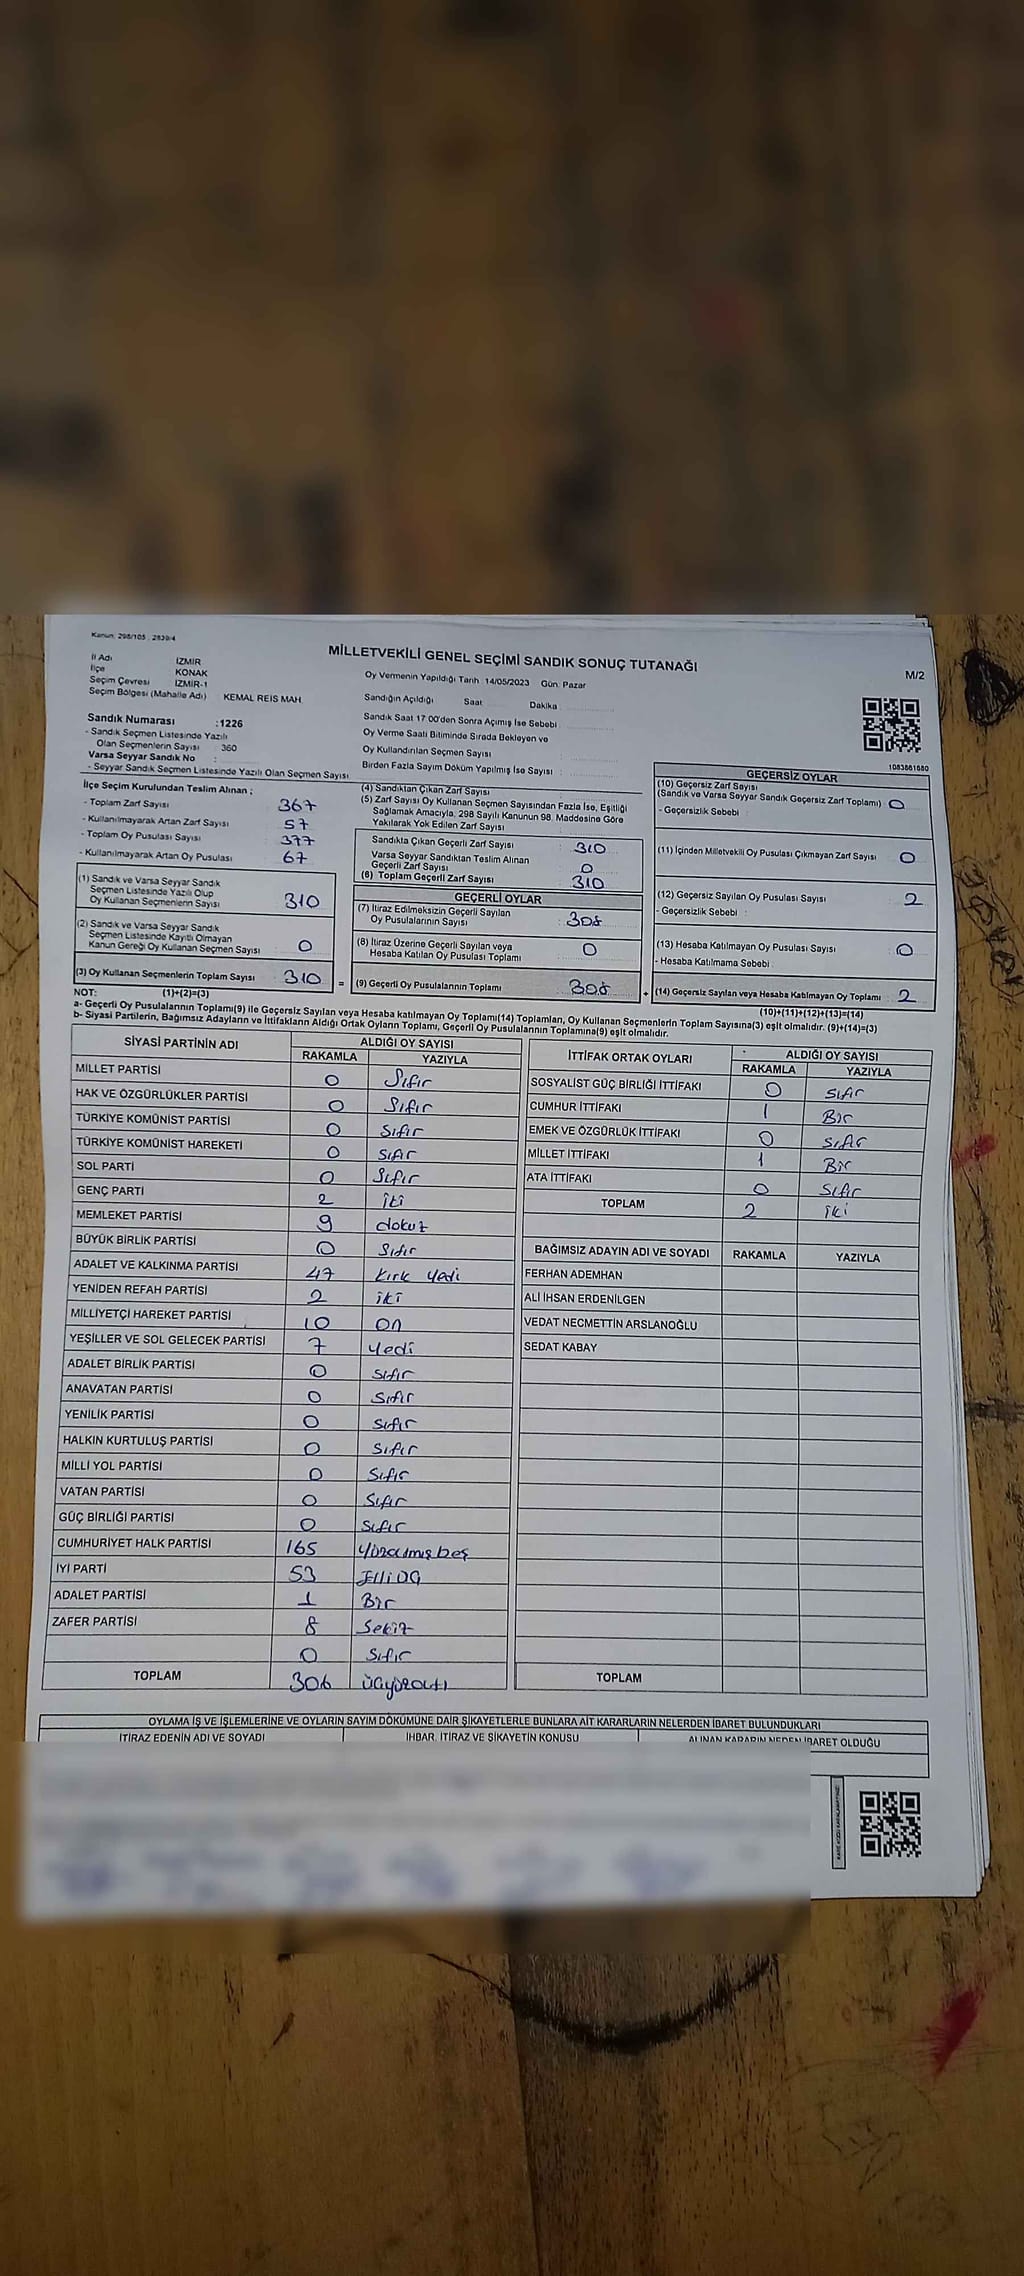 Kanun: 298/105 , 2839/4
MİLLETVEKİLİ GENEL SEÇİMİ SANDIK SONUÇ TUTANAĞI
M/2
İl Adı İZMİR
İlçe KONAK
Seçim Çevresi İZMİR-1
Seçim Bölgesi (Mahalle Adı) KEMAL REİS MAH.
Oy Vermenin Yapıldığı Tarih : 14/05/2023 Gün: Pazar
Sandığın Açıldığı Saat Dakika
Sandık Saat 17:00'den Sonra Açılmış İse Sebebi :
Oy Verme Saati Bitiminde Sırada Bekleyen ve
Oy Kullandırılan Seçmen Sayısı :
Birden Fazla Sayım Döküm Yapılmış İse Sayısı :
Sandık Numarası :1226
- Sandık Seçmen Listesinde Yazılı
Olan Seçmenlerin Sayısı : 360
Varsa Seyyar Sandık No :
- Seyyar Sandık Seçmen Listesinde Yazılı Olan Seçmen Sayısı
1083861680
İlçe Seçim Kurulundan Teslim Alınan ;
- Toplam Zarf Sayısı 367
- Kullanılmayarak Artan Zarf Sayısı 57
- Toplam Oy Pusulası Sayısı 377
- Kullanılmayarak Artan Oy Pusulası 67
(1) Sandık ve Varsa Seyyar Sandık
Seçmen Listesinde Yazılı Olup
Oy Kullanan Seçmenlerin Sayısı 310
(2) Sandık ve Varsa Seyyar Sandık
Seçmen Listesinde Kayıtlı Olmayan
Kanun Gereği Oy Kullanan Seçmen Sayısı 0
(3) Oy Kullanan Seçmenlerin Toplam Sayısı 310 =
(4) Sandıktan Çıkan Zarf Sayısı :
(5) Zarf Sayısı Oy Kullanan Seçmen Sayısından Fazla İse, Eşitliği
Sağlamak Amacıyla, 298 Sayılı Kanunun 98. Maddesine Göre
Yakılarak Yok Edilen Zarf Sayısı :
Sandıkta Çıkan Geçerli Zarf Sayısı : 310
Varsa Seyyar Sandıktan Teslim Alınan
Geçerli Zarf Sayısı : 0
(6) Toplam Geçerli Zarf Sayısı : 310
GEÇERLİ OYLAR
(7) İtiraz Edilmeksizin Geçerli Sayılan
Oy Pusulalarının Sayısı : 308
(8) İtiraz Üzerine Geçerli Sayılan veya
Hesaba Katılan Oy Pusulası Toplamı : 0
(9) Geçerli Oy Pusulalarının Toplamı : 308 +
GEÇERSİZ OYLAR
(10) Geçersiz Zarf Sayısı
(Sandık ve Varsa Seyyar Sandık Geçersiz Zarf Toplamı) : 0
- Geçersizlik Sebebi :
(11) İçinden Milletvekili Oy Pusulası Çıkmayan Zarf Sayısı : 0
(12) Geçersiz Sayılan Oy Pusulası Sayısı : 2
- Geçersizlik Sebebi :
(13) Hesaba Katılmayan Oy Pusulası Sayısı : 0
- Hesaba Katılmama Sebebi :
(14) Geçersiz Sayılan veya Hesaba Katılmayan Oy Toplamı : 2
NOT: (1)+(2)=(3) (10)+(11)+(12)+(13)=(14)
a- Geçerli Oy Pusulalarının Toplamı(9) ile Geçersiz Sayılan veya Hesaba katılmayan Oy Toplamı(14) Toplamları, Oy Kullanan Seçmenlerin Toplam Sayısına(3) eşit olmalıdır. (9)+(14)=(3)
b- Siyasi Partilerin, Bağımsız Adayların ve İttifakların Aldığı Ortak Oyların Toplamı, Geçerli Oy Pusulalarının Toplamına(9) eşit olmalıdır.
SİYASİ PARTİNİN ADI ALDIĞI OY SAYISI
RAKAMLA YAZIYLA
MİLLET PARTİSİ 0 Sıfır
HAK VE ÖZGÜRLÜKLER PARTİSİ 0 Sıfır
TÜRKİYE KOMÜNİST PARTİSİ 0 Sıfır
TÜRKİYE KOMÜNİST HAREKETİ 0 Sıfır
SOL PARTİ 0 Sıfır
GENÇ PARTİ 2 İki
MEMLEKET PARTİSİ 9 dokuz
BÜYÜK BİRLİK PARTİSİ 0 Sıfır
ADALET VE KALKINMA PARTİSİ 47 kırk yedi
YENİDEN REFAH PARTİSİ 2 iki
MİLLİYETÇİ HAREKET PARTİSİ 10 on
YEŞİLLER VE SOL GELECEK PARTİSİ 7 yedi
ADALET BİRLİK PARTİSİ 0 sıfır
ANAVATAN PARTİSİ 0 sıfır
YENİLİK PARTİSİ 0 sıfır
HALKIN KURTULUŞ PARTİSİ 0 sıfır
MİLLİ YOL PARTİSİ 0 Sıfır
VATAN PARTİSİ 0 Sıfır
GÜÇ BİRLİĞİ PARTİSİ 0 Sıfır
CUMHURİYET HALK PARTİSİ 165 yüzaltmışbeş
İYİ PARTİ 53 Elliüç
ADALET PARTİSİ 1 Bir
ZAFER PARTİSİ 8 Sekiz
0 Sıfır
TOPLAM 306 üçyüzaltı
İTTİFAK ORTAK OYLARI ALDIĞI OY SAYISI
RAKAMLA YAZIYLA
SOSYALİST GÜÇ BİRLİĞİ İTTİFAKI 0 sıfır
CUMHUR İTTİFAKI 1 Bir
EMEK VE ÖZGÜRLÜK İTTİFAKI 0 sıfır
MİLLET İTTİFAKI 1 Bir
ATA İTTİFAKI 0 Sıfır
TOPLAM 2 iki
BAĞIMSIZ ADAYIN ADI VE SOYADI RAKAMLA YAZIYLA
FERHAN ADEMHAN
ALİ İHSAN ERDENİLGEN
VEDAT NECMETTİN ARSLANOĞLU
SEDAT KABAY
TOPLAM
OYLAMA İŞ VE İŞLEMLERİNE VE OYLARIN SAYIM DÖKÜMÜNE DAİR ŞİKAYETLERLE BUNLARA AİT KARARLARIN NELERDEN İBARET BULUNDUKLARI
İTİRAZ EDENİN ADI VE SOYADI İHBAR, İTİRAZ VE ŞİKAYETİN KONUSU ALINAN KARARIN NEDEN İBARET OLDUĞU